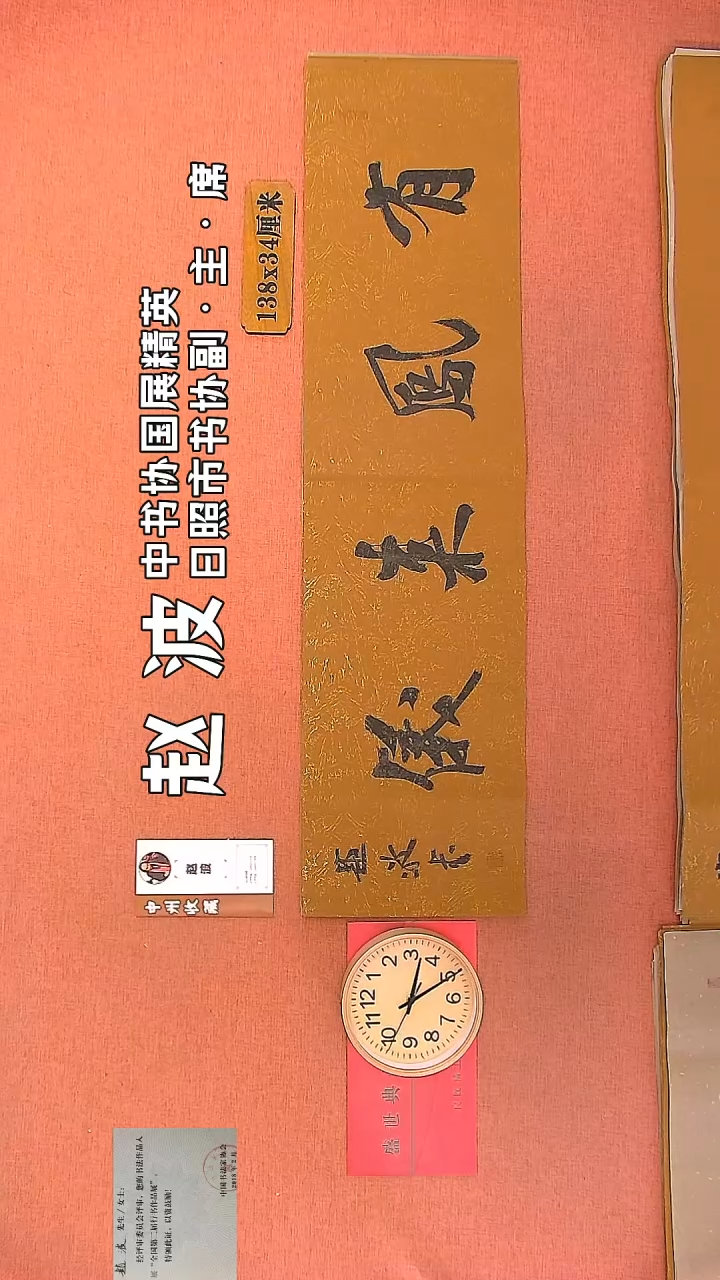 赵波
中书协国展精英
日照市书协副·主·席
138x34厘米
有風来儀
赵波
中州收藏
12
1
2
3
4
5
6
7
8
9
10
11
盛世典
赵波 先生／女士：
经评审委员会评审，您的书法作品入
展“全国第二届行书作品展”。
特颁此证，以资鼓励！
中国书法家协会